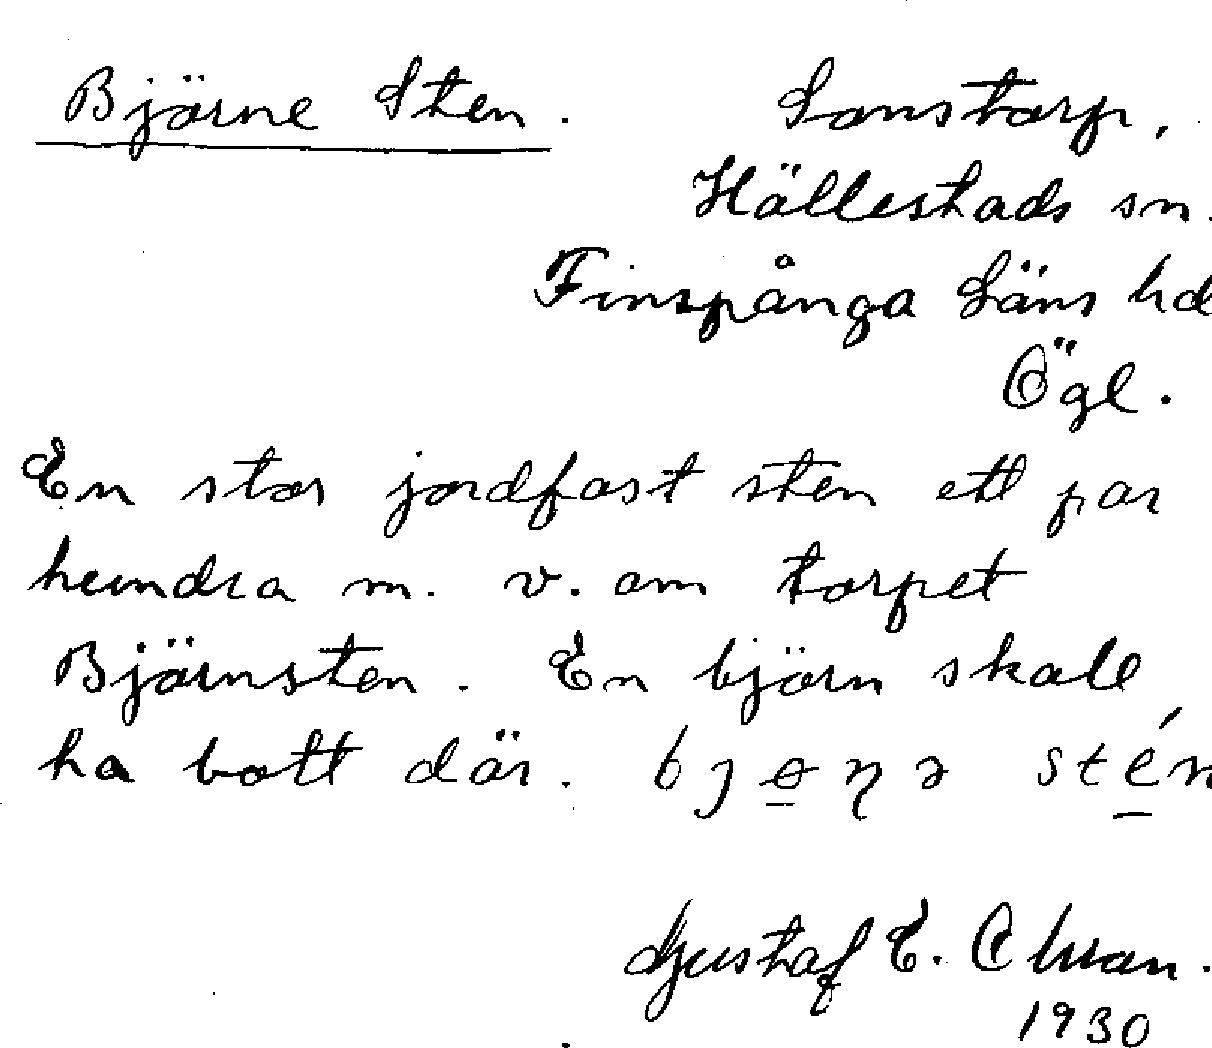 Björne Sten. Sonstorp,
Hällestads sn.
Finspånga Läns hd
Ögl.
En stor jordfast sten ett par
hundra m. v. om torpet
Björnsten. En björn skall
ha bott där. bjɵṇə stén
Gustaf E.
1930